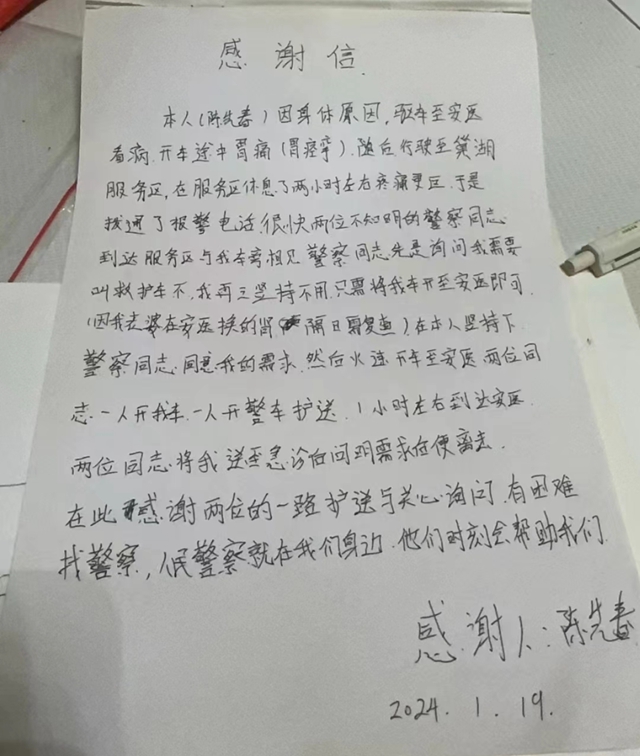 感谢信.
本人(陈先春)因身体原因,驱车至安医
看病.开车途中胃痛(胃痉挛).随后行驶至龚湖
服务区,在服务区休息了两小时左右疼痛更
拨通了报警电话.很快两位不知明的警察同志
到达服务区与我本旁相见.警察同志先是询问我需要
叫救护车不,我再三坚持不用,只需将我本开至安医即可.
(因我老婆在安医换的肾 隔日需复查)在本人坚持下
警察同志.同意我的需求.然后火速 下车至安医.两位同
志.一人开我车.一人开警车护送.1小时左右到达安医.
两位同志将我送至急诊后问明需求后便离去.
在此感谢两位的一路护送与关心询问.有困难
找警察,人民警察就在我们身边.他们时刻会帮助我们.
感谢人:陈先春
2024.1.19.